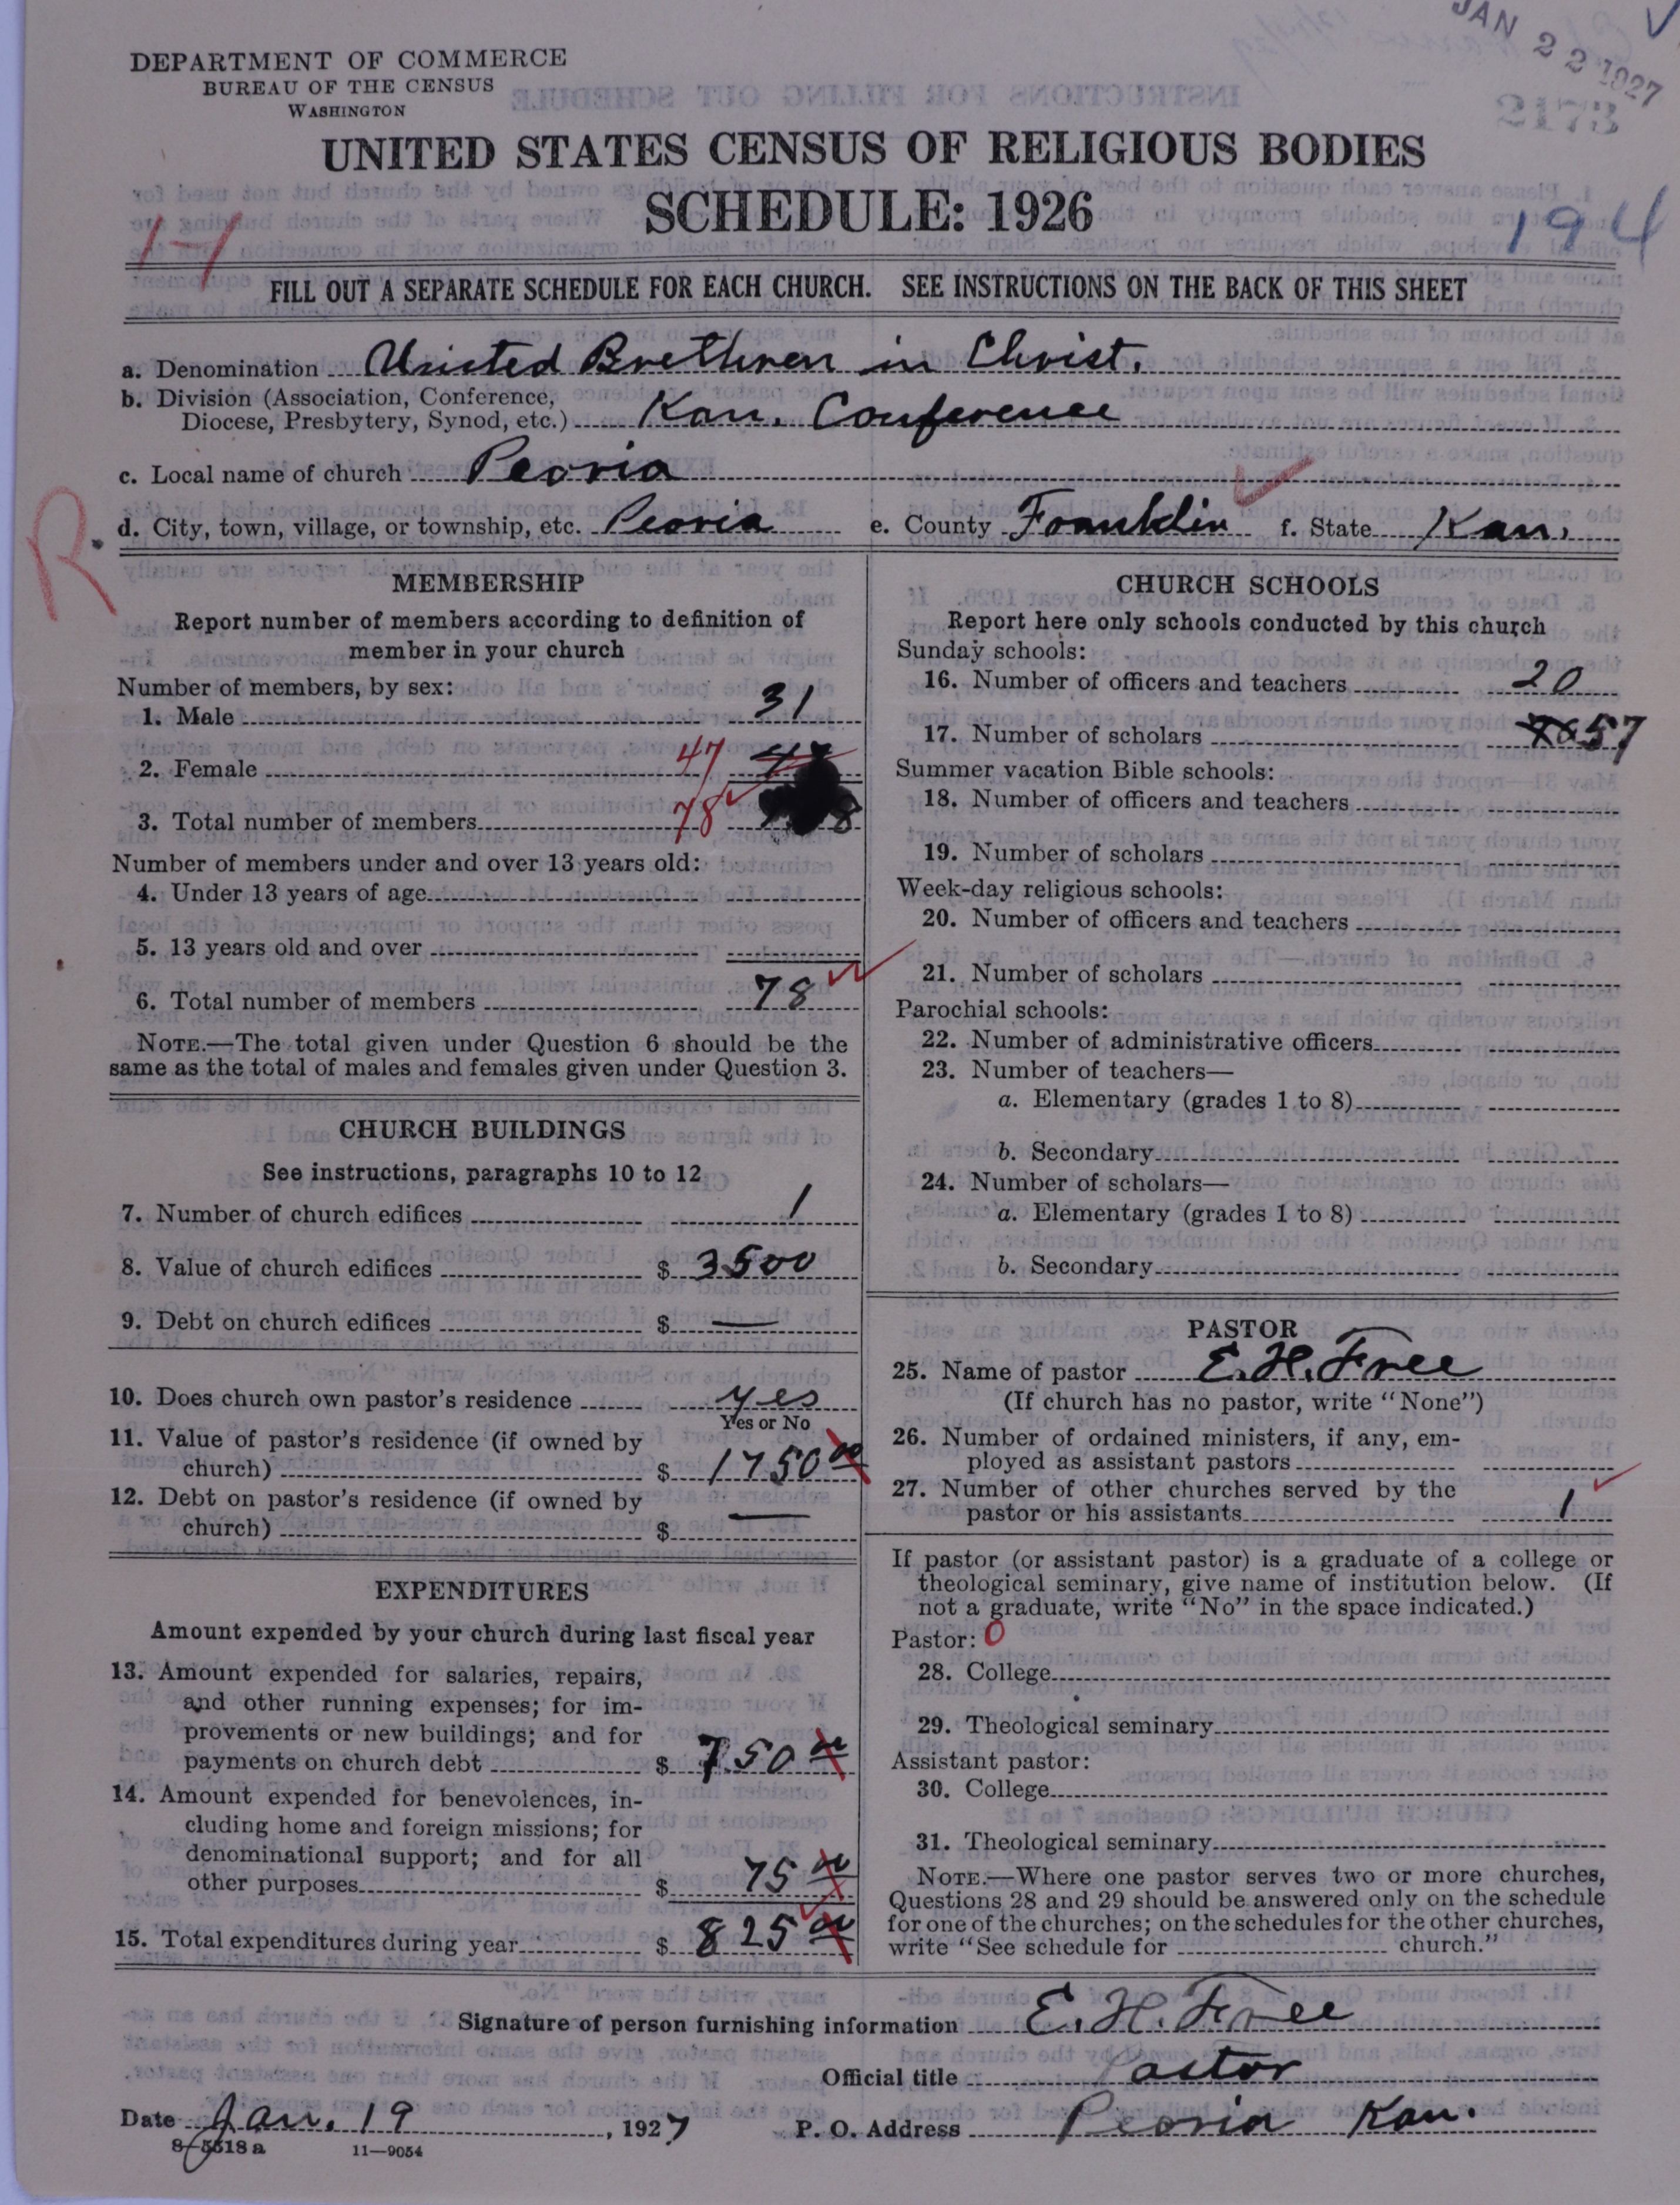 JAN 22 1927
2173
DEPARTMENT OF COMMERCE
BUREAU OF THE CENSUS
WASHINGTON
UNITED STATES CENSUS OF RELIGIOUS BODIES
SCHEDULE: 1926
194
17
FILL OUT A SEPARATE SCHEDULE FOR EACH CHURCH. SEE INSTRUCTIONS ON THE BACK OF THIS SHEET
a. Denomination United Brethren in Christ.
b. Division (Association, Conference,
Diocese, Presbytery, Synod, etc.) Kan. Conference
c. Local name of church Peoria
R.
d. City, town, village, or township, etc. Peoria e. County Franklin f. State Kan.
MEMBERSHIP
Report number of members according to definition of
member in your church
Number of members, by sex:
1. Male 31
2. Female 47
3. Total number of members 78
Number of members under and over 13 years old:
4. Under 13 years of age
5. 13 years old and over
6. Total number of members 78
NOTE.—The total given under Question 6 should be the
same as the total of males and females given under Question 3.
CHURCH BUILDINGS
See instructions, paragraphs 10 to 12
7. Number of church edifices 1
8. Value of church edifices $ 3500
9. Debt on church edifices $ —
10. Does church own pastor's residence yes
Yes or No
11. Value of pastor's residence (if owned by
church) $ 1750 00
12. Debt on pastor's residence (if owned by
church) $ —
EXPENDITURES
Amount expended by your church during last fiscal year
13. Amount expended for salaries, repairs,
and other running expenses; for im-
provements or new buildings; and for
payments on church debt $ 750 00
14. Amount expended for benevolences, in-
cluding home and foreign missions; for
denominational support; and for all
other purposes $ 75 00
15. Total expenditures during year $ 825 00
CHURCH SCHOOLS
Report here only schools conducted by this church
Sunday schools:
16. Number of officers and teachers 20
17. Number of scholars 57
Summer vacation Bible schools:
18. Number of officers and teachers
19. Number of scholars
Week-day religious schools:
20. Number of officers and teachers
21. Number of scholars
Parochial schools:
22. Number of administrative officers
23. Number of teachers—
a. Elementary (grades 1 to 8)
b. Secondary
24. Number of scholars—
a. Elementary (grades 1 to 8)
b. Secondary
PASTOR
25. Name of pastor E. H. Free
(If church has no pastor, write "None")
26. Number of ordained ministers, if any, em-
ployed as assistant pastors
27. Number of other churches served by the
pastor or his assistants 1
If pastor (or assistant pastor) is a graduate of a college or
theological seminary, give name of institution below. (If
not a graduate, write "No" in the space indicated.)
Pastor: 0
28. College
29. Theological seminary
Assistant pastor:
30. College
31. Theological seminary
NOTE.—Where one pastor serves two or more churches,
Questions 28 and 29 should be answered only on the schedule
for one of the churches; on the schedules for the other churches,
write "See schedule for church."
Signature of person furnishing information E. H. Free
Official title Pastor
Date Jan. 19, 1927 P. O. Address Peoria Kan.
8-5518 a 11-9054